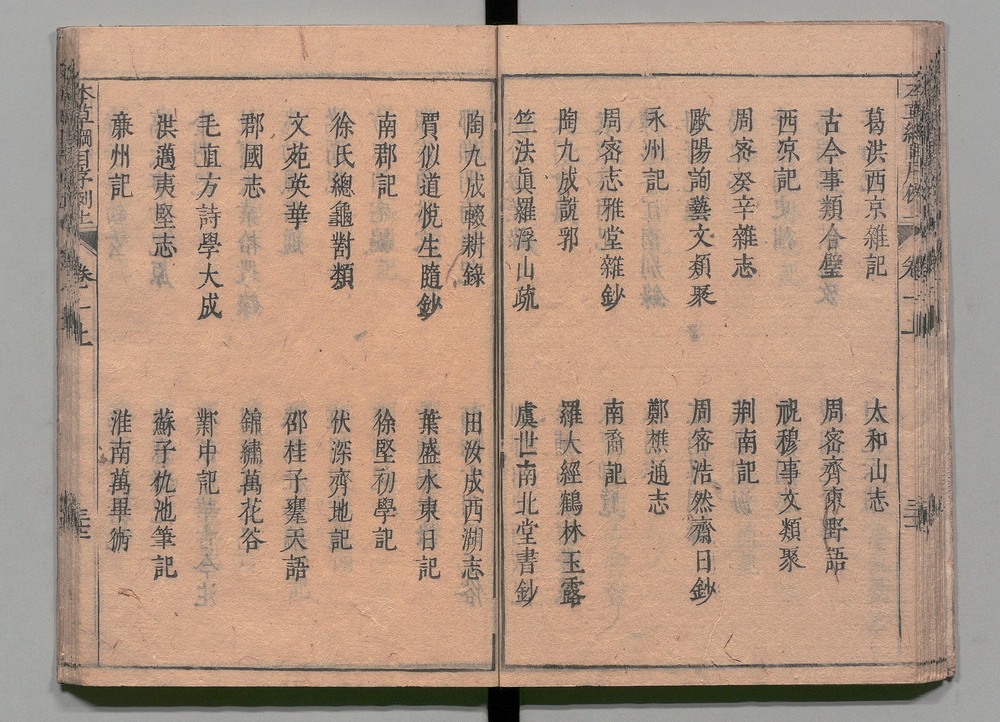 葛洪西京雜記
太和山志
古今事類合璧
周密齊東野語
西凉記
祝穆事文類聚
周密癸辛雜志
荆南記
歐陽詢藝文類聚
周密浩然齋日鈔
永州記
鄭樵通志
周密志雅堂雜鈔
南裔記
陶九成說郛
羅大經鶴林玉露
竺法眞羅浮山疏
虞世南北堂書鈔
陶九成輟耕錄
田汝成西湖志
賈似道悅生隨鈔
葉盛水東日記
南郡記
徐堅初學記
徐氏總龜對類
伏深齊地記
文苑英華
邵桂子甕天語
郡國志
錦繡萬花谷
毛直方詩學大成
鄴中記
洪邁夷堅志
蘇子仇池筆記
亷州記
淮南萬畢術
本草綱目序例上
卷一上